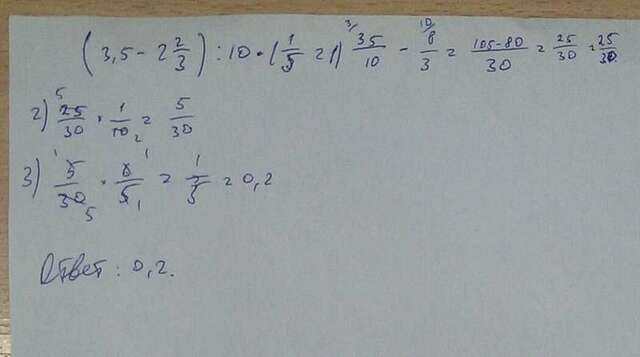 (3,5 - 2 2/3) : 10 · (1/5 = 1) 3/ 35/10 - 10/ 8/3 = 105-80/30 = 25/30 = 25/30
2) 5 25/30 · 1/10 2 = 5/30
3) 1 5/30 5 · 6/5 1 1 = 1/5 = 0,2
Ответ : 0,2.